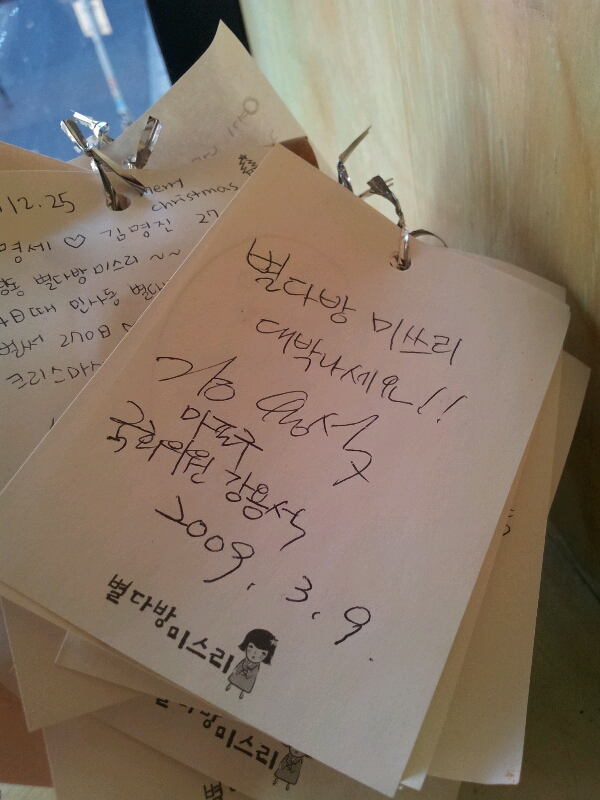 12.25
merry
christmas
명세 ♡ 김명진 27
별다방미스리 ~~
인사동 별다
벌써 270일
크리스마스
별다방 미쓰리
대박나세요!!
강용석
마포구
국회의원 강용석
2009. 3. 9.
별다방미스리
다방미스리